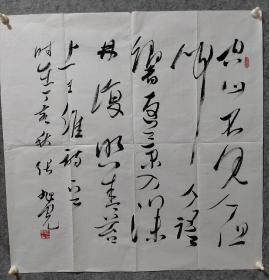 空山不见人但
闻人语
响返景入深
林复照青苔
上王维诗一首
时在丁亥秋